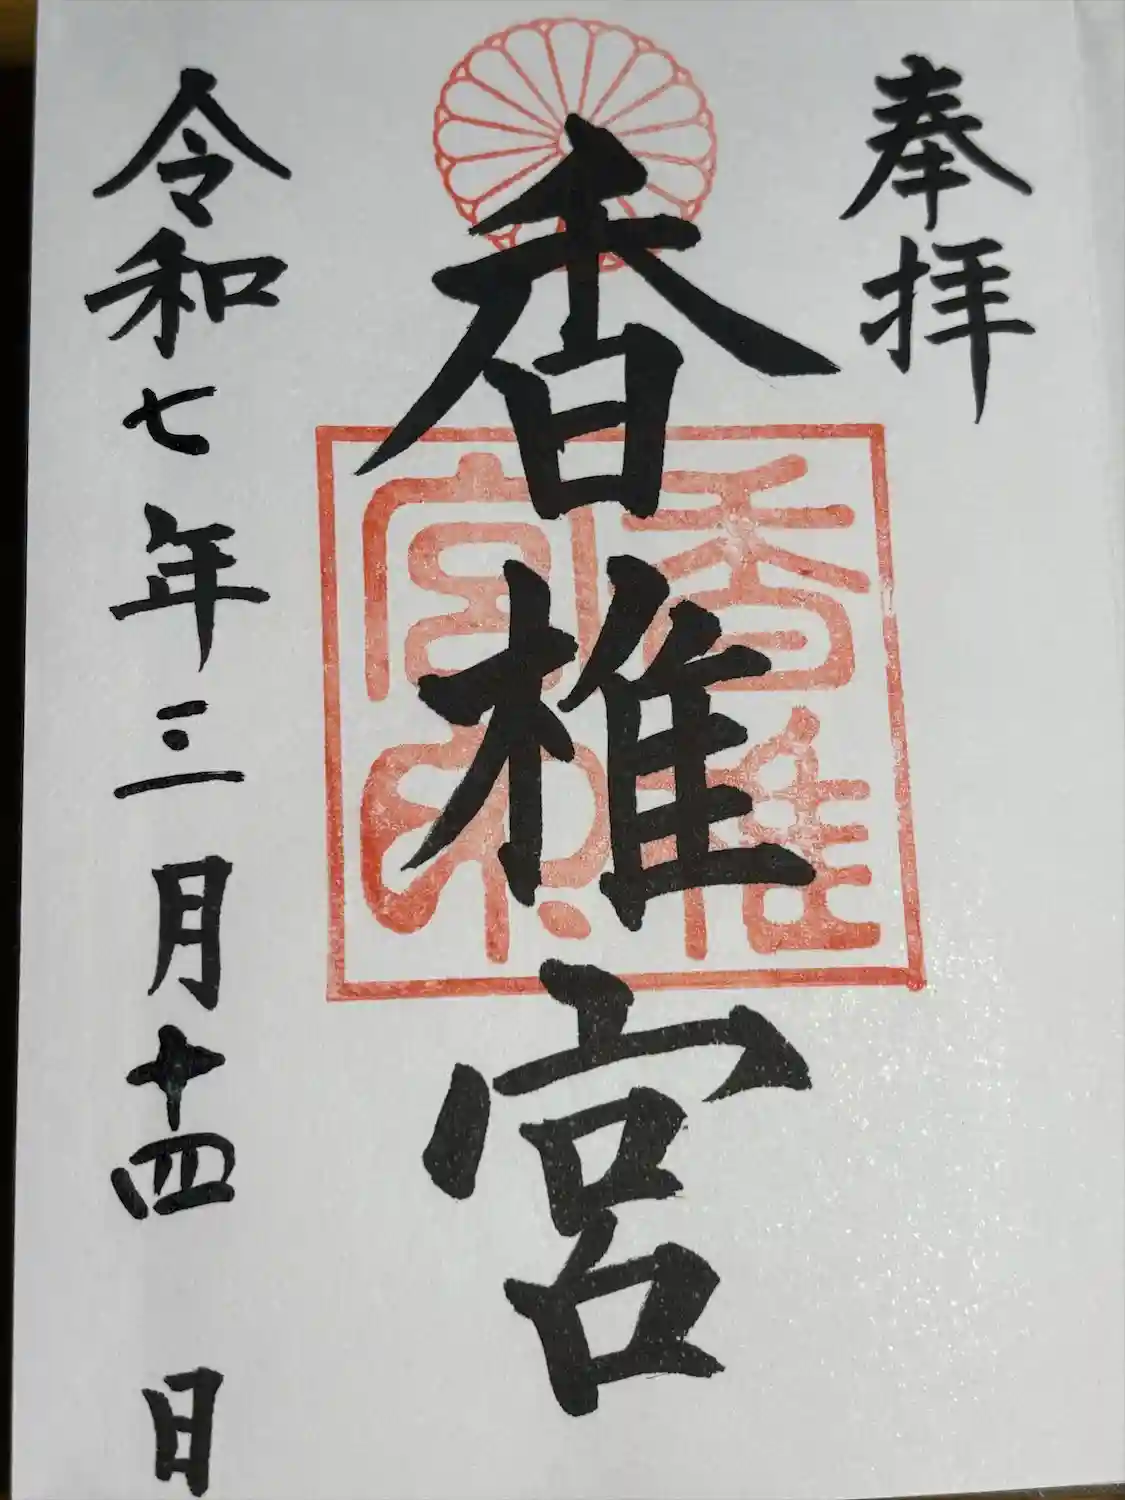 奉拝
香椎宮
令和七年三月十四日